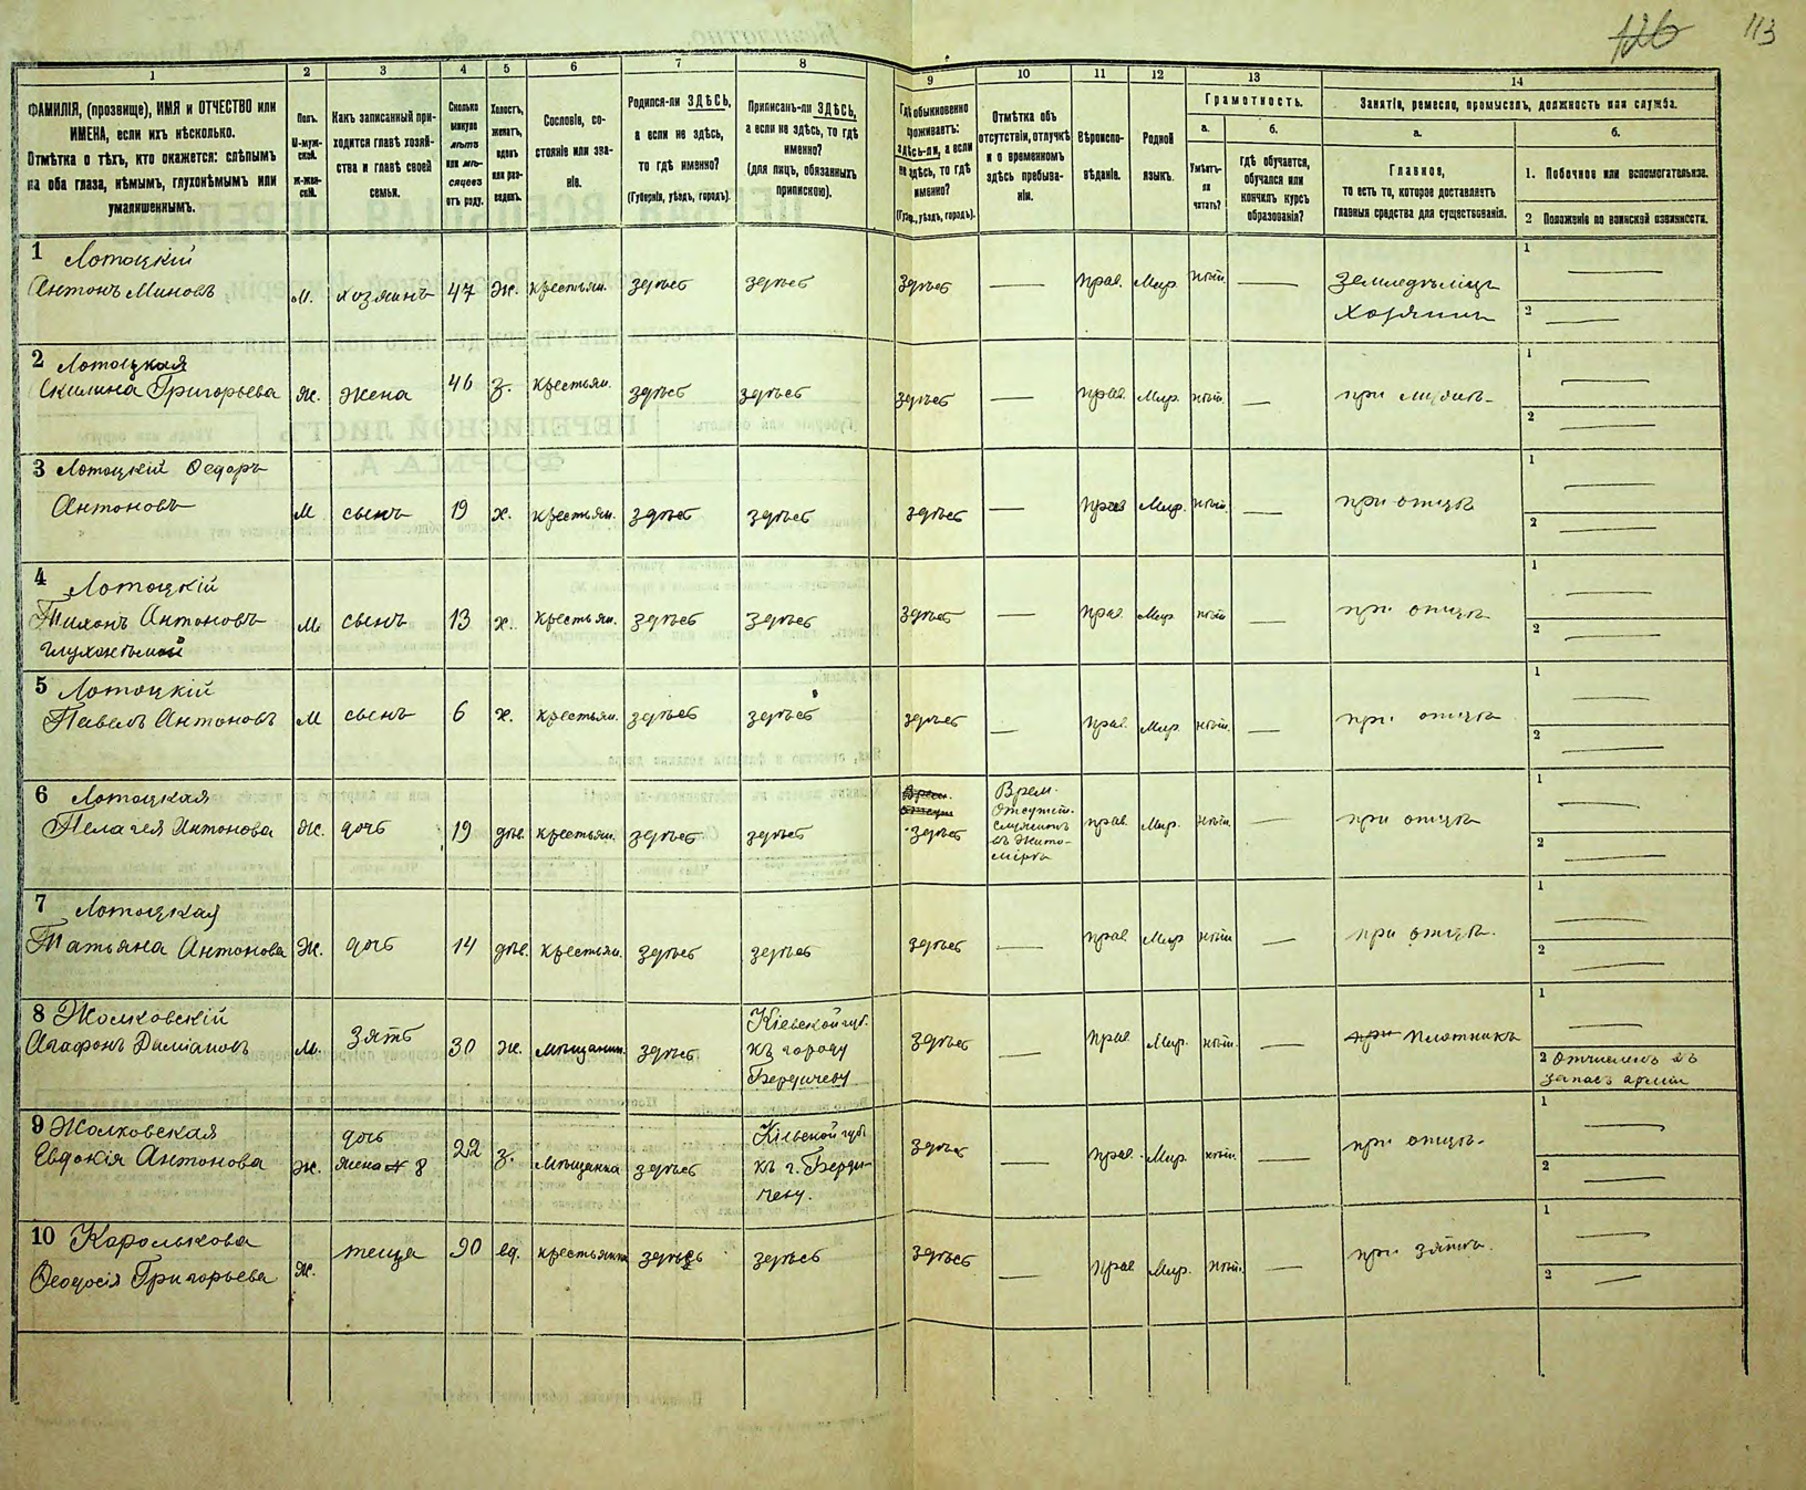 126 113
1 2 3 4 5 6 7 8 9 10 11 12 13 14
ФАМИЛІЯ, (прозвище), ИМЯ и ОТЧЕСТВО или
ИМЕНА, если ихъ нѣсколько.
Отмѣтка о тѣхъ, кто окажется: слѣпымъ
на оба глаза, нѣмымъ, глухонѣмымъ или
умалишеннымъ.
Полъ.
М-муж-
ской.
Ж-жен-
скій.
Какъ записанный при-
ходится главѣ хозяй-
ства и главѣ своей
семьи.
Сколько
минуло
лѣтъ
или мѣ-
сяцевъ
отъ роду.
Холостъ,
женатъ,
вдовъ
или раз-
веденъ.
Сословіе, со-
стояніе или зва-
ніе.
Родился-ли ЗДѢСЬ,
а если не здѣсь,
то гдѣ именно?
(Губернія, уѣздъ, городъ).
Приписанъ-ли ЗДѢСЬ,
а если не здѣсь, то гдѣ
именно?
(для лицъ, обязанныхъ
припискою).
Гдѣ обыкновенно
проживаетъ:
здѣсь-ли, а если
не здѣсь, то гдѣ
именно?
(Губ., уѣздъ, городъ).
Отмѣтка объ
отсутствіи, отлучкѣ
и о временномъ
здѣсь пребыва-
ніи.
Вѣроиспо-
вѣданіе.
Родной
языкъ.
Грамотность.
а.
Умѣетъ-
ли
читать?
б.
гдѣ обучается,
обучался или
кончилъ курсъ
образованія?
Занятіе, ремесло, промыселъ, должность или служба.
а.
Главное,
то есть то, которое доставляетъ
главныя средства для существованія.
б.
1. Побочное или вспомогательное.
2 Положеніе по воинской повинности.
1 Лотоцкій
Антонъ Миновъ М. хозяинъ 47 Ж. крестьян. здѣсь здѣсь здѣсь — прав. Мир. нѣт. — Земледѣлецъ
хозяинъ
1 —
2 —
2 Лотоцкая
Григорьева Ж. жена 46 з. крестьян. здѣсь здѣсь здѣсь — прав. Мир. нѣт. —
1 —
2 —
3 Лотоцкій Ѳедоръ
Антоновъ М сынъ 19 х. крестьян. здѣсь здѣсь здѣсь — прав Мир. нѣт. — при отцѣ
1 —
2 —
4 Лотоцкій
Тихонъ Антоновъ М. сынъ 13 х. крестьян. здѣсь здѣсь здѣсь — прав. Мир. нѣт — при отцѣ
глухонѣмой
1 —
2 —
5 Лотоцкій
Павелъ Антоновъ М сынъ 6 х. крестьян. здѣсь здѣсь здѣсь — прав. Мир. нѣт. — при отцѣ
1 —
2 —
6 Лотоцкая
Пелагея Антонова Ж. дочь 19 дѣв. крестьян. здѣсь здѣсь здѣсь
Врем.
Отсутст.
въ Жито-
мірѣ
прав. Мир. нѣт. — при отцѣ
1 —
2 —
7 Лотоцкая
Татьяна Антонова Ж. дочь 14 дѣв. крестьян. здѣсь здѣсь здѣсь — прав Мир нѣт — при отцѣ.
1 —
2 —
8 Жолковскій
Агафонъ Даміановъ М. зять 30 Ж. мѣщанин. здѣсь
Кіевской губ.
къ городу
Бердичеву
здѣсь — прав Мир. нѣт. — при плотникъ
1 —
2 Отчисленъ въ
запасъ арміи
9 Жолковская
Евдокія Антонова Ж.
дочь
жена № 8
22 з. мѣщанка здѣсь
Кіевской губ
къ г. Берди-
чеву.
здѣсь — прав. Мир. нѣт. — при отцѣ.
1 —
2 —
10 Каролькова
Ѳеодосія Григорьева Ж. теща 90 вд. крестьянка здѣсь здѣсь здѣсь — прав. Мир. нѣт. — при зятѣ.
1 —
2 —